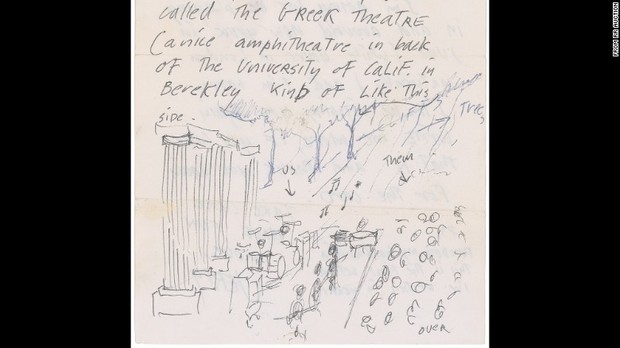 called The GREEK THEATRE
(a nice amphitheatre in back
of The University of Calif. in
Berekley kind of Like This
side.
Trees
Them
us
OVER
FROM RR AUCTION